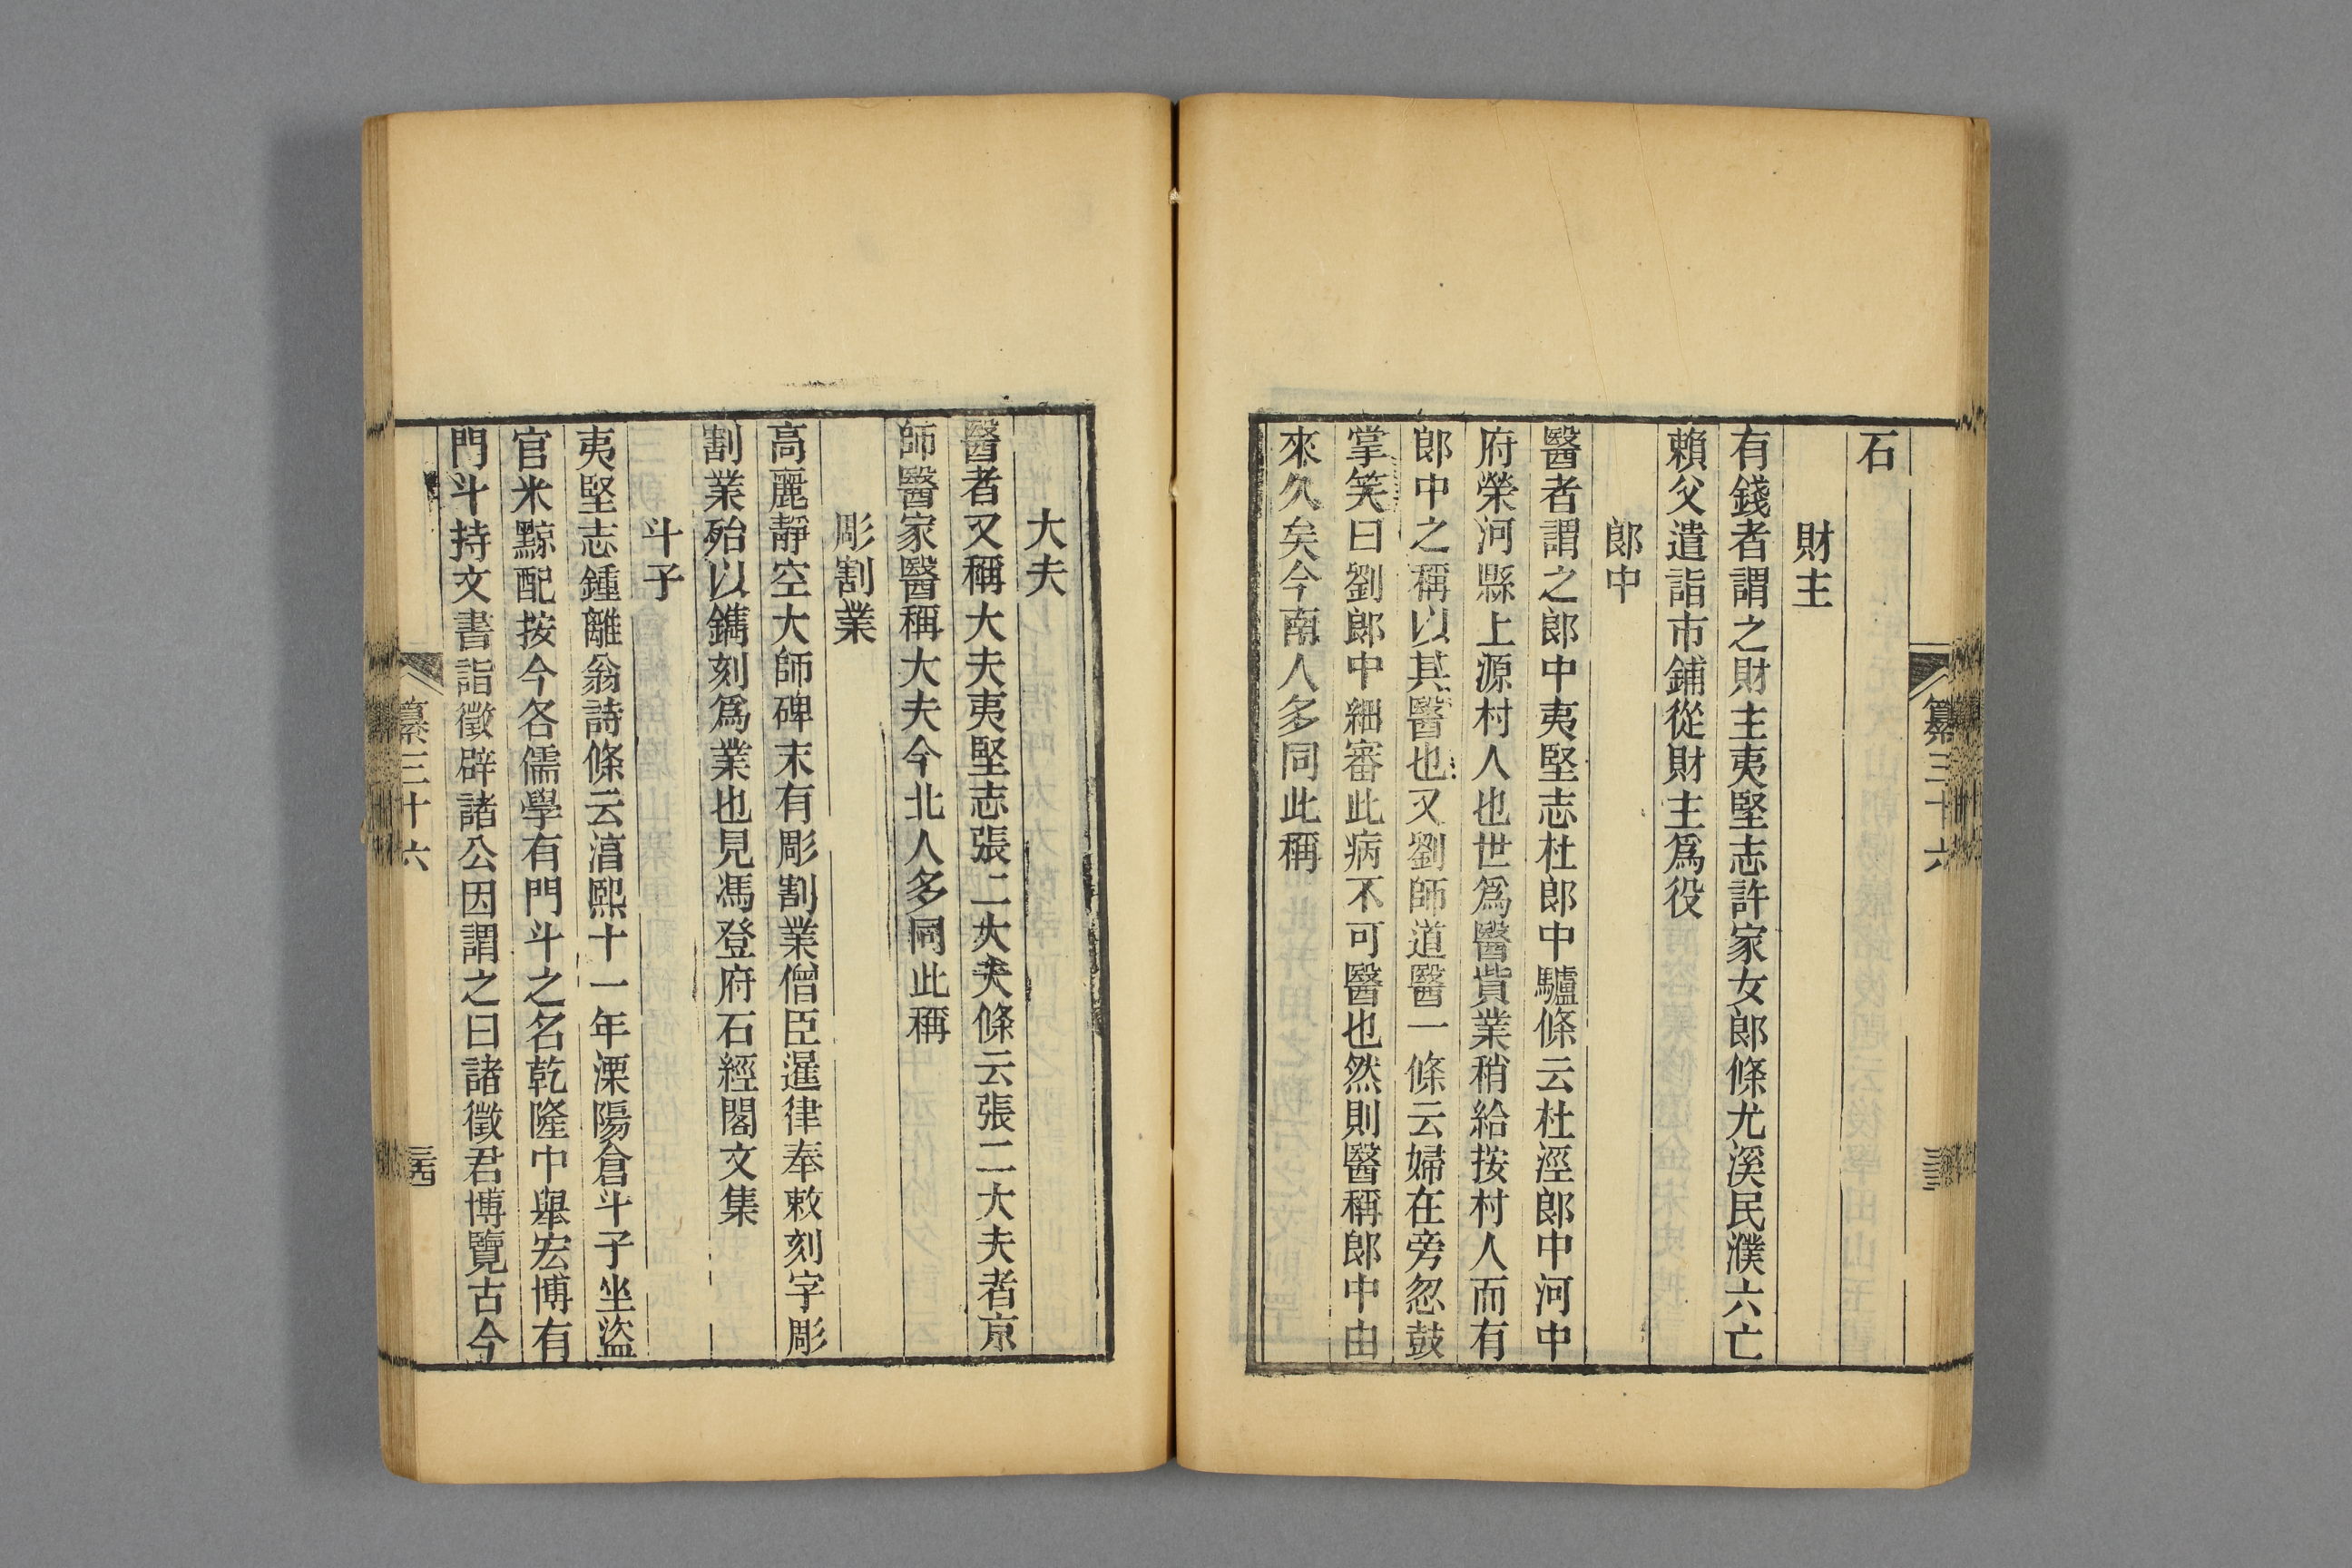 石
財主
有錢者謂之財主夷堅志許家女郎條尤溪民濮六亡
賴父遣詣市鋪從財主爲役
郎中
醫者謂之郎中夷堅志杜郎中驢條云杜涇郎中河中
府榮河縣上源村人也世爲醫貲業稍給按村人而有
郎中之稱以其醫也又劉師道醫一條云婦在旁忽鼓
掌笑曰劉郎中細審此病不可醫也然則醫稱郎中由
來久矣今南人多同此稱
纂三十六
大夫
醫者又稱大夫夷堅志張二大夫條云張二大夫者京
師醫家醫稱大夫今北人多同此稱
彫割業
高麗靜空大師碑末有彫割業僧臣暹律奉敕刻字彫
割業殆以鐫刻爲業也見馮登府石經閣文集
斗子
夷堅志鍾離翁詩條云淳熙十一年溧陽倉斗子坐盜
官米黥配按今各儒學有門斗之名乾隆中舉宏博有
門斗持文書詣徵辟諸公因謂之曰諸徵君博覽古今
纂三十六